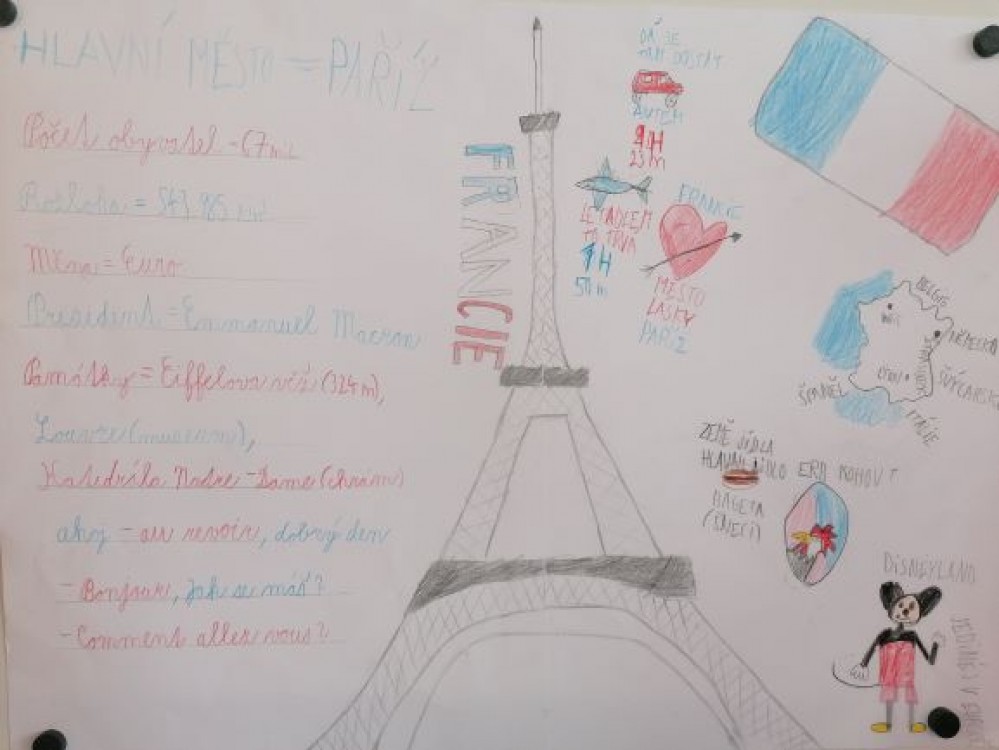 HLAVNÍ MĚSTO = PAŘÍŽ
Počet obyvatel - 67 mil
Rozloha = 543 985 km²
Měna = Euro
President = Emmanuel Macron
Památky = Eiffelova věž (324 m),
Louvre (museum),
Katedrála Notre - Dame (chrám)
ahoj - au revoir, dobrý den
- Bonjour, Jak se máš?
- Comment allez vous?
FRANCIE
DÁ SE
TAM DOSTAT
AUTEM
23 m
LETADLEM
TO TRVÁ
1 H
50 m
FRANCIE
MĚSTO
LÁSKY
PAŘÍŽ
BELGIE
NĚMECKO
ŠVÝCARSKO
ITÁLIE
ŠPANĚL
ZEMĚ JÍDLA
HLAVNÍ JÍDLO
BAGETA
ERB KOHOUT
DISNEYLAND
JEDINEJ V